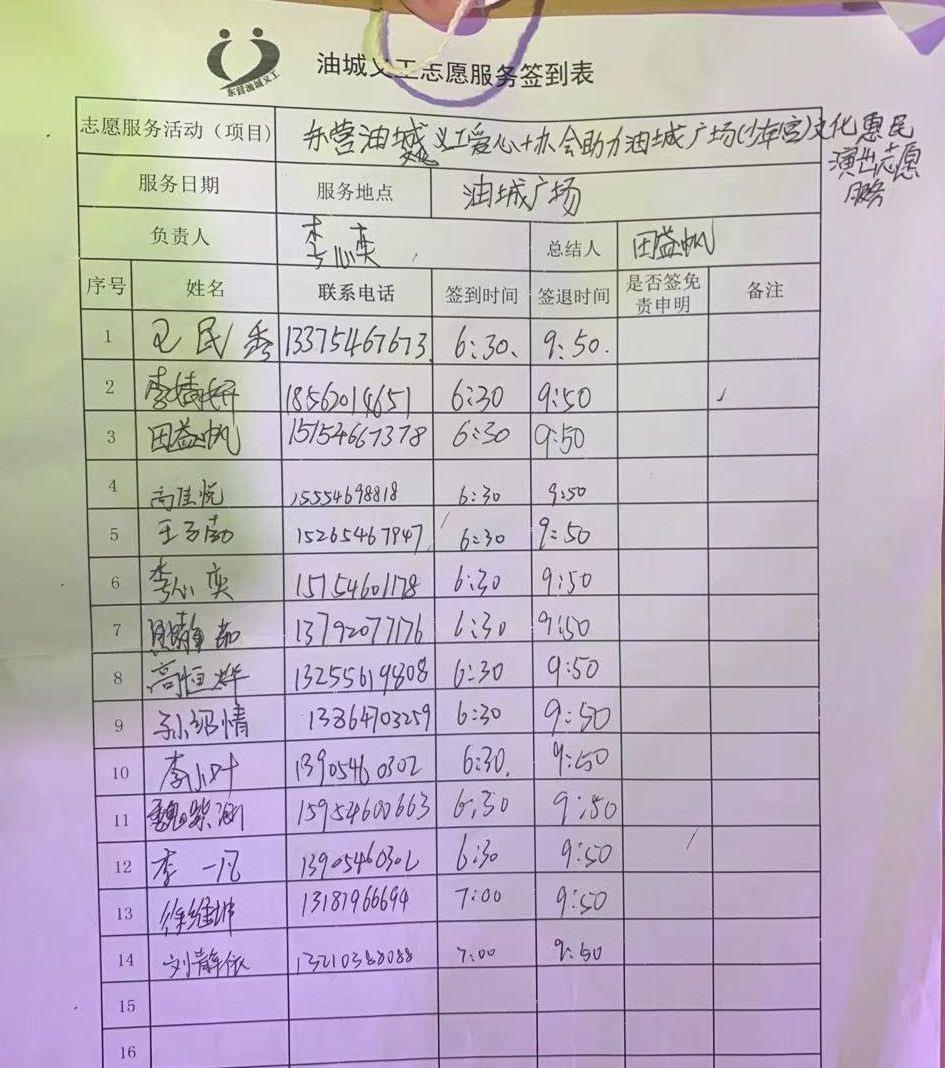 东营油城义工
油城义工志愿服务签到表
志愿服务活动（项目） 东营油城义工爱心协会助力油城广场(少年宫)文化惠民
演出志愿
服务
服务日期 服务地点 油城广场
负责人 李心奕 总结人 田益帆
序号 姓名 联系电话 签到时间 签退时间 是否签免
责申明 备注
1 民秀 13375467673 6:30 9:50
2 李婧妍 18562014651 6:30 9:50
3 田益帆 15154667378 6:30 9:50
4 高佳悦 15554698818 6:30 9:50
5 王子 15265467947 6:30 9:50
6 李心奕 15154601178 6:30 9:50
7 13792077176 6:30 9:50
8 高恒烨 13255619808 6:30 9:50
9 孙绍情 13864703259 6:30 9:50
10 李小叶 13905460302 6:30 9:50
11 魏紫涵 15954600663 6:30 9:50
12 李一凡 13905460302 6:30 9:50
13 徐 13181966694 7:00 9:50
14 刘静依 13210388088 7:00 9:50
15
16